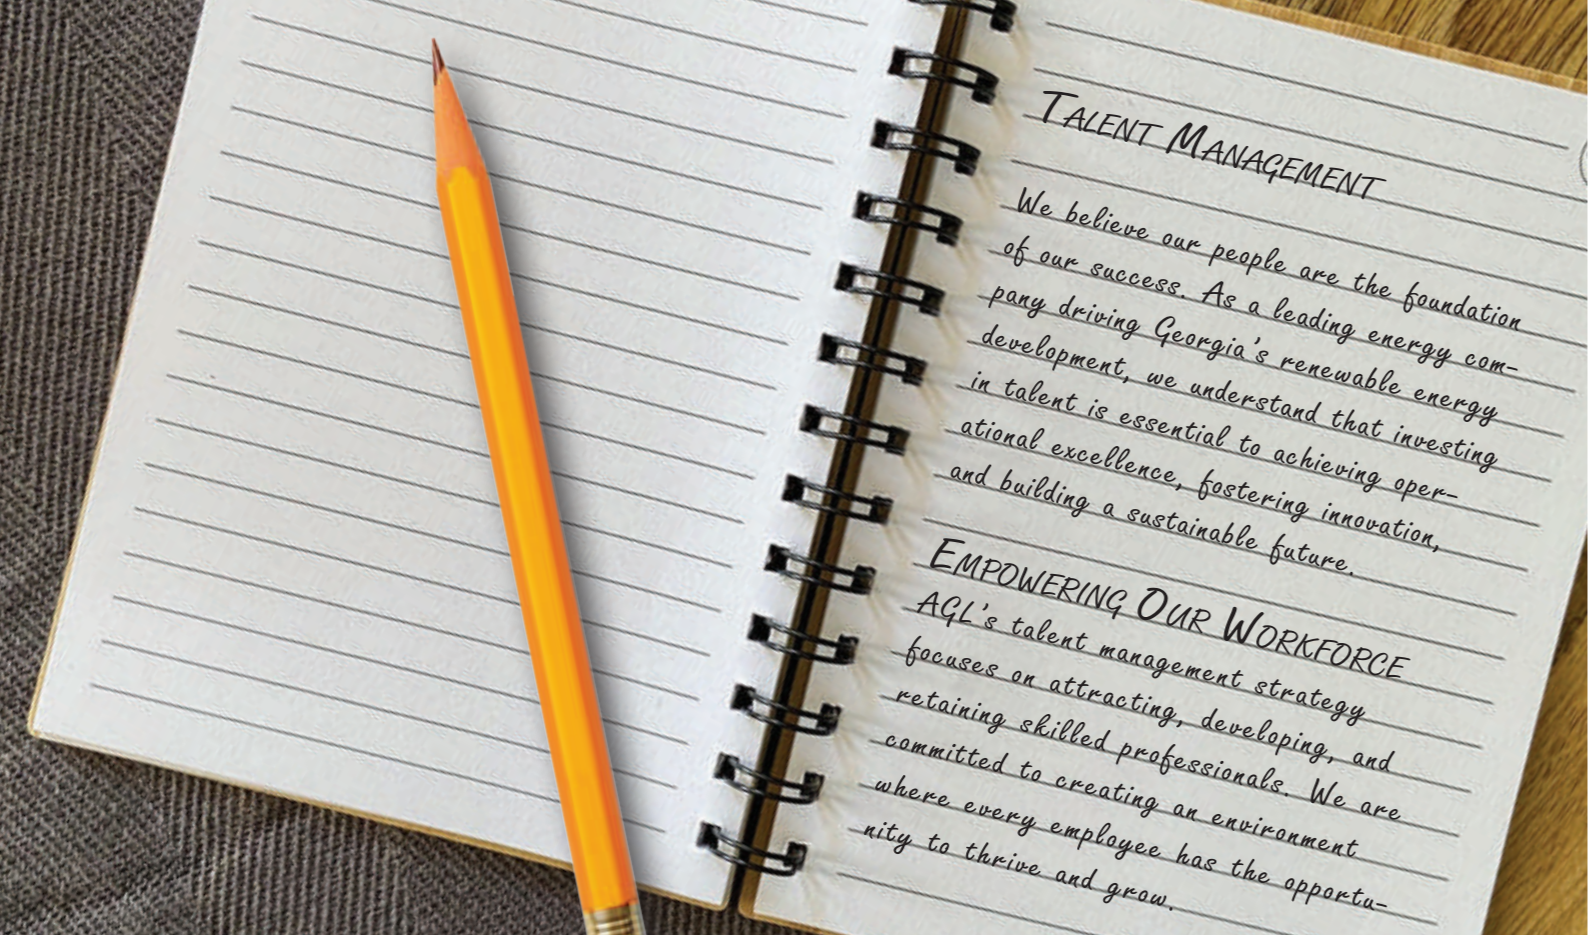 Talent Management
We believe our people are the foundation
of our success. As a leading energy com-
pany driving Georgia's renewable energy
development, we understand that investing
in talent is essential to achieving oper-
ational excellence, fostering innovation,
and building a sustainable future.
Empowering Our Workforce
AGL's talent management strategy
focuses on attracting, developing, and
retaining skilled professionals. We are
committed to creating an environment
where every employee has the opportu-
nity to thrive and grow.